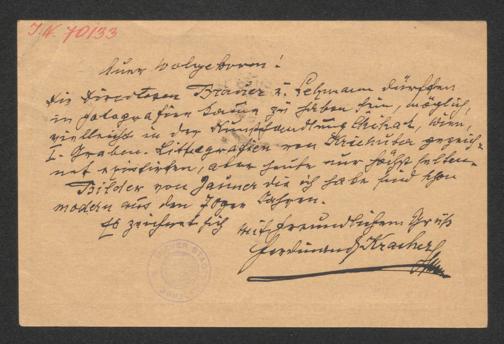 J.N. 70133
Euer Wolgeboren!
Die Directoren Brauer u. Lehmann dürften
in Fotografien kaum zu haben sein, möglich,
vielleicht in der Kunsthandlung Wien,
I. Graben. Littografien von Kriehuber gezeich-
net existieren, aber heute nur höchst selten.
Bilder von Jauner die ich habe sind schon
modern aus den 70ger Jahren.
Es zeichnet sich mit freundlichem Gruß
Ferdinand Kracher